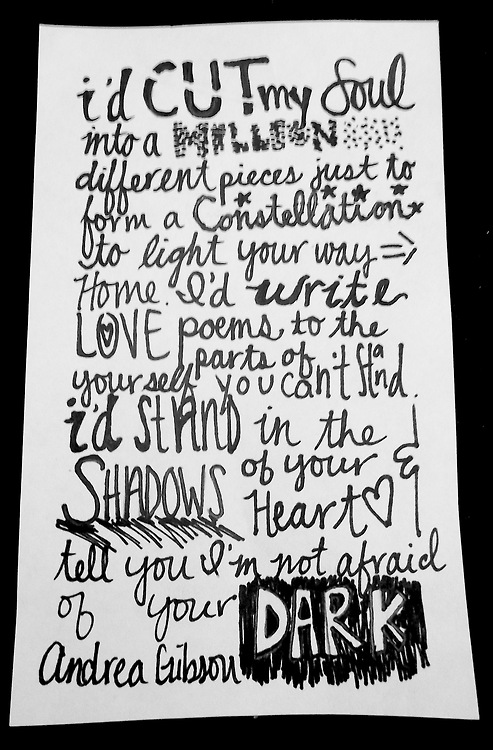 i'd CUT my Soul
into a MILLION
different pieces just to
form a Constellation
to light your way =>
Home. I'd write
LOVE poems to the
parts of
yourself you can't stand.
i'd STAND in the
SHADOWS of your
Heart ♡ &
tell you I'm not afraid
of your DARK
Andrea Gibson